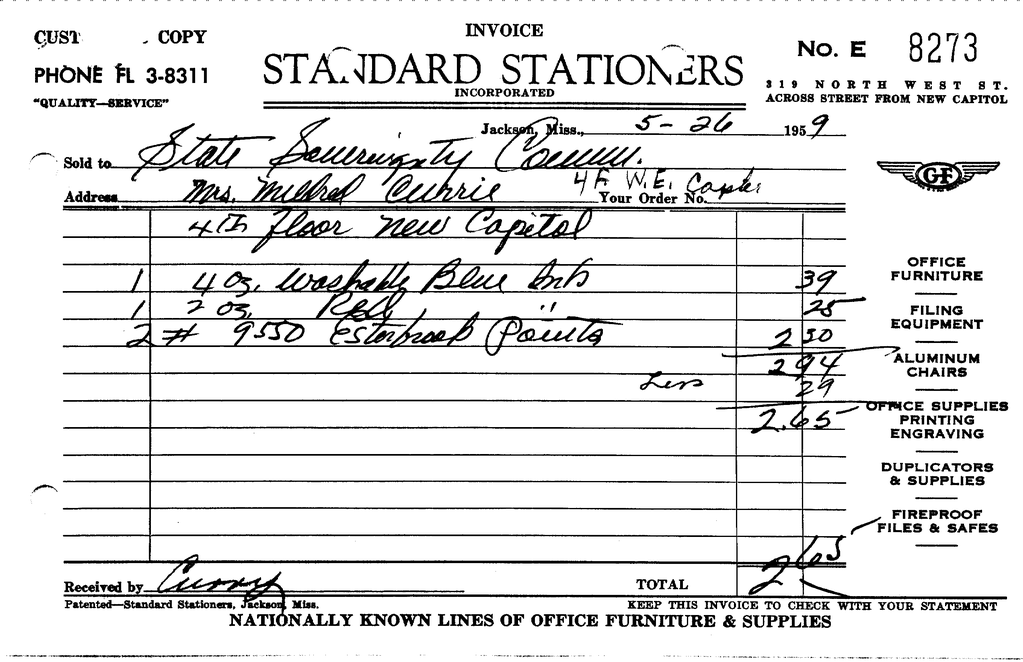 CUST COPY
INVOICE
No. E 8273
PHONE FL 3-8311
STANDARD STATIONERS
INCORPORATED
"QUALITY—SERVICE"
319 NORTH WEST ST.
ACROSS STREET FROM NEW CAPITOL
Jackson, Miss., 5-26 1959
Sold to State Soverignty Comm.
Address Mrs. Mildred Currie Your Order No. W.E.
4th floor New Capitol
1 4 oz. Washable Blue Ink 39
1 2 oz. Red " 25
2 # 9550 Esterbrook Points 2 30
2 94
Less 29
2.65
GF
OFFICE
FURNITURE
FILING
EQUIPMENT
ALUMINUM
CHAIRS
OFFICE SUPPLIES
PRINTING
ENGRAVING
DUPLICATORS
& SUPPLIES
FIREPROOF
FILES & SAFES
Received by Curry TOTAL 2 65
Patented—Standard Stationers, Jackson, Miss. KEEP THIS INVOICE TO CHECK WITH YOUR STATEMENT
NATIONALLY KNOWN LINES OF OFFICE FURNITURE & SUPPLIES